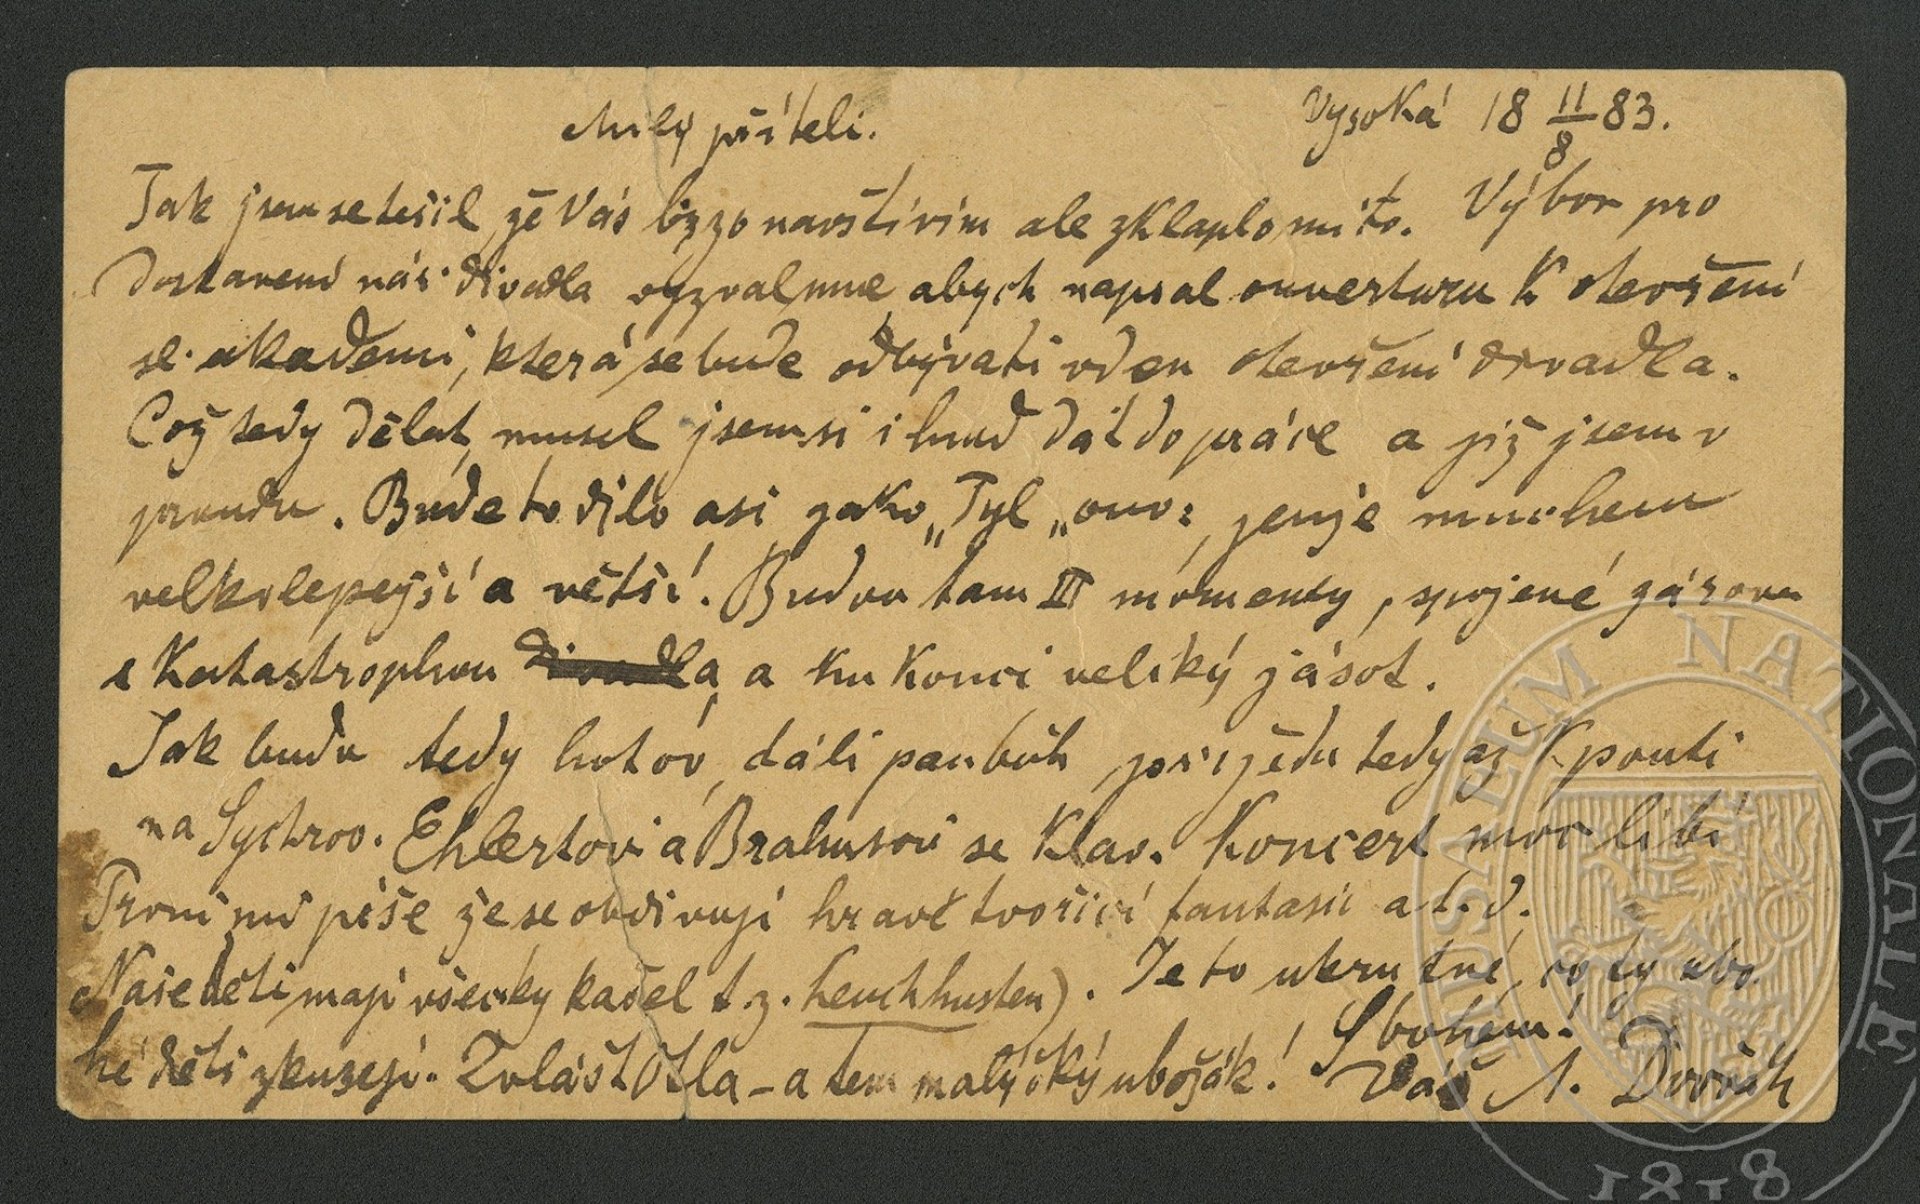 Milý příteli.
Vysoká 18 11/8 83.
Tak jsem se těšil, že Vás brzo navštívím ale zklaplo mi to. Výbor pro
Dostavení nár. divadla vyzval mne, abych napsal ouverturu k otevření
sl. akademii, která se bude odbývati v den otevření divadla.
Což tedy dělat, musel jsem si i hned dát do práce a již jsem v
proudu. Bude to dílo asi jako „Tyl„ ouv:, jen je mnohem
velkolepejší a větší. Budou tam III momenty, spojené zároveň
s Katastrophou divadla, a ku konci veliký jásot.
Jak budu tedy hotov, dáli pan bůh, přijedu tedy až k pouti
na Sychrov. Ehlertovi a Brahmsovi se Klav. Koncert moc líbí
První mě píše že se obdivují hravé tvořivé fantasii a t. d.
Naše děti mají všecky kašel t. z. Keuchhusten). Je to ukrutné, co ty ubo-
hé děti zkusejí. Zvlášť Otla – a ten malýčký ubožák!
S bohem!
Váš A. Dvořák
MUSAEUM NATIONALE
1818